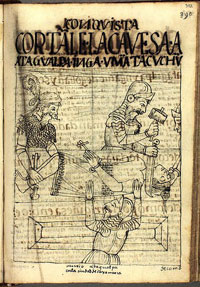 CONQVISTA
CORTALE LA CAVESA A
ATAGVALPA INGA·VMATA CVCHV
murio atagualpa
en la ciudad de Caxamarca